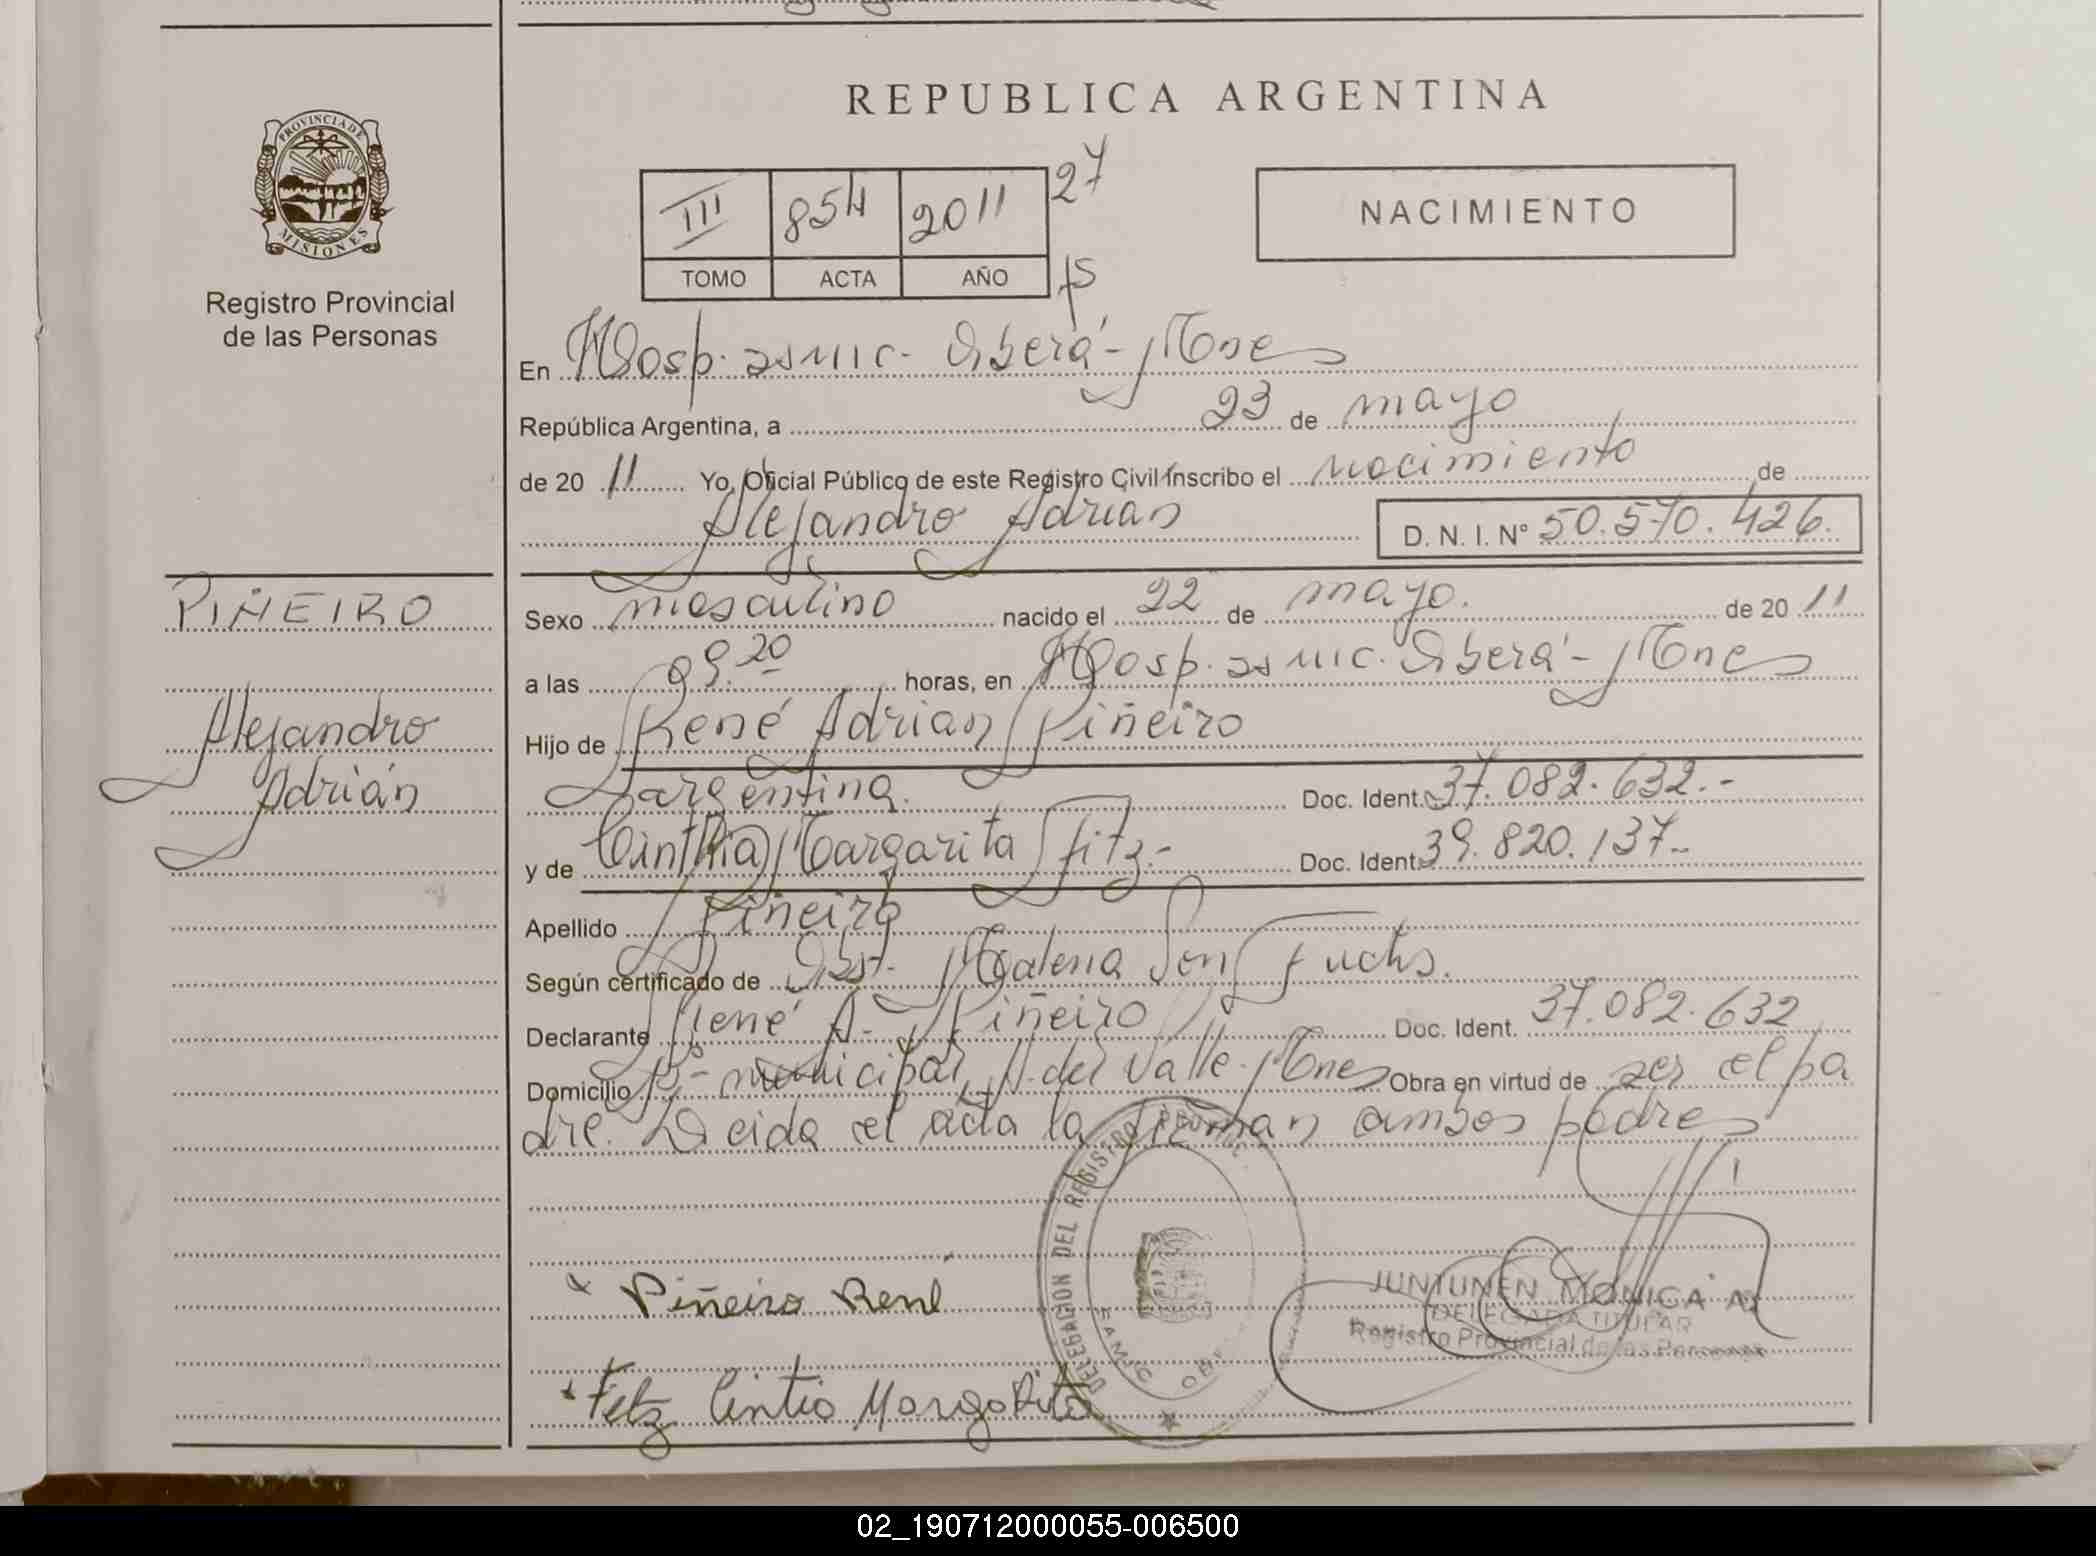 REPUBLICA ARGENTINA
PROVINCIA DE
MISIONES
Registro Provincial
de las Personas
III 854 2011 27
TOMO ACTA AÑO
NACIMIENTO
En Hosp. Oberá - Mnes
República Argentina, a 23 de mayo
de 20 11 Yo, Oficial Público de este Registro Civil inscribo el nacimiento de
Alejandro Adrián D. N. I. N° 50.570.426.
PIÑEIRO
Alejandro
Adrián
Sexo masculino nacido el 22 de mayo. de 20 11
a las 09.20 horas, en Hosp. Oberá - Mnes
Hijo de René Adrian Piñeiro
argentina. Doc. Ident. 37.082.632.-
y de Cinthia Margarita Fitz.- Doc. Ident. 39.820.137.-
Apellido Piñeiro
Según certificado de Obst. Fuchs.
Declarante René A. Piñeiro Doc. Ident. 37.082.632
Domicilio municipal, A. del Valle - Mnes Obra en virtud de ser el pa
dre. Leida el acta la firman ambos padres
DELEGACION DEL REGISTRO
x Piñeiro René
JUNTUNEN MONICA A.
DELEGADA TITULAR
Registro Provincial de las Personas
x Fetz Cintia Margarita
02_190712000055-006500